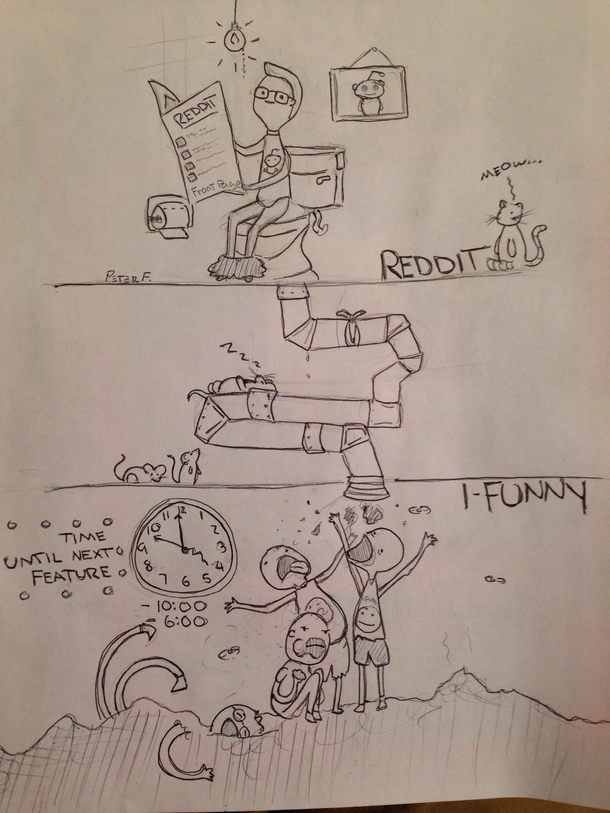 REDDIT
Front Page
MEOW...
REDDIT
PETER F.
Z Z Z Z
I-FUNNY
TIME
UNTIL NEXT
FEATURE
12
1
2
3
4
5
6
7
8
9
10
11
- 10:00
- 6:00